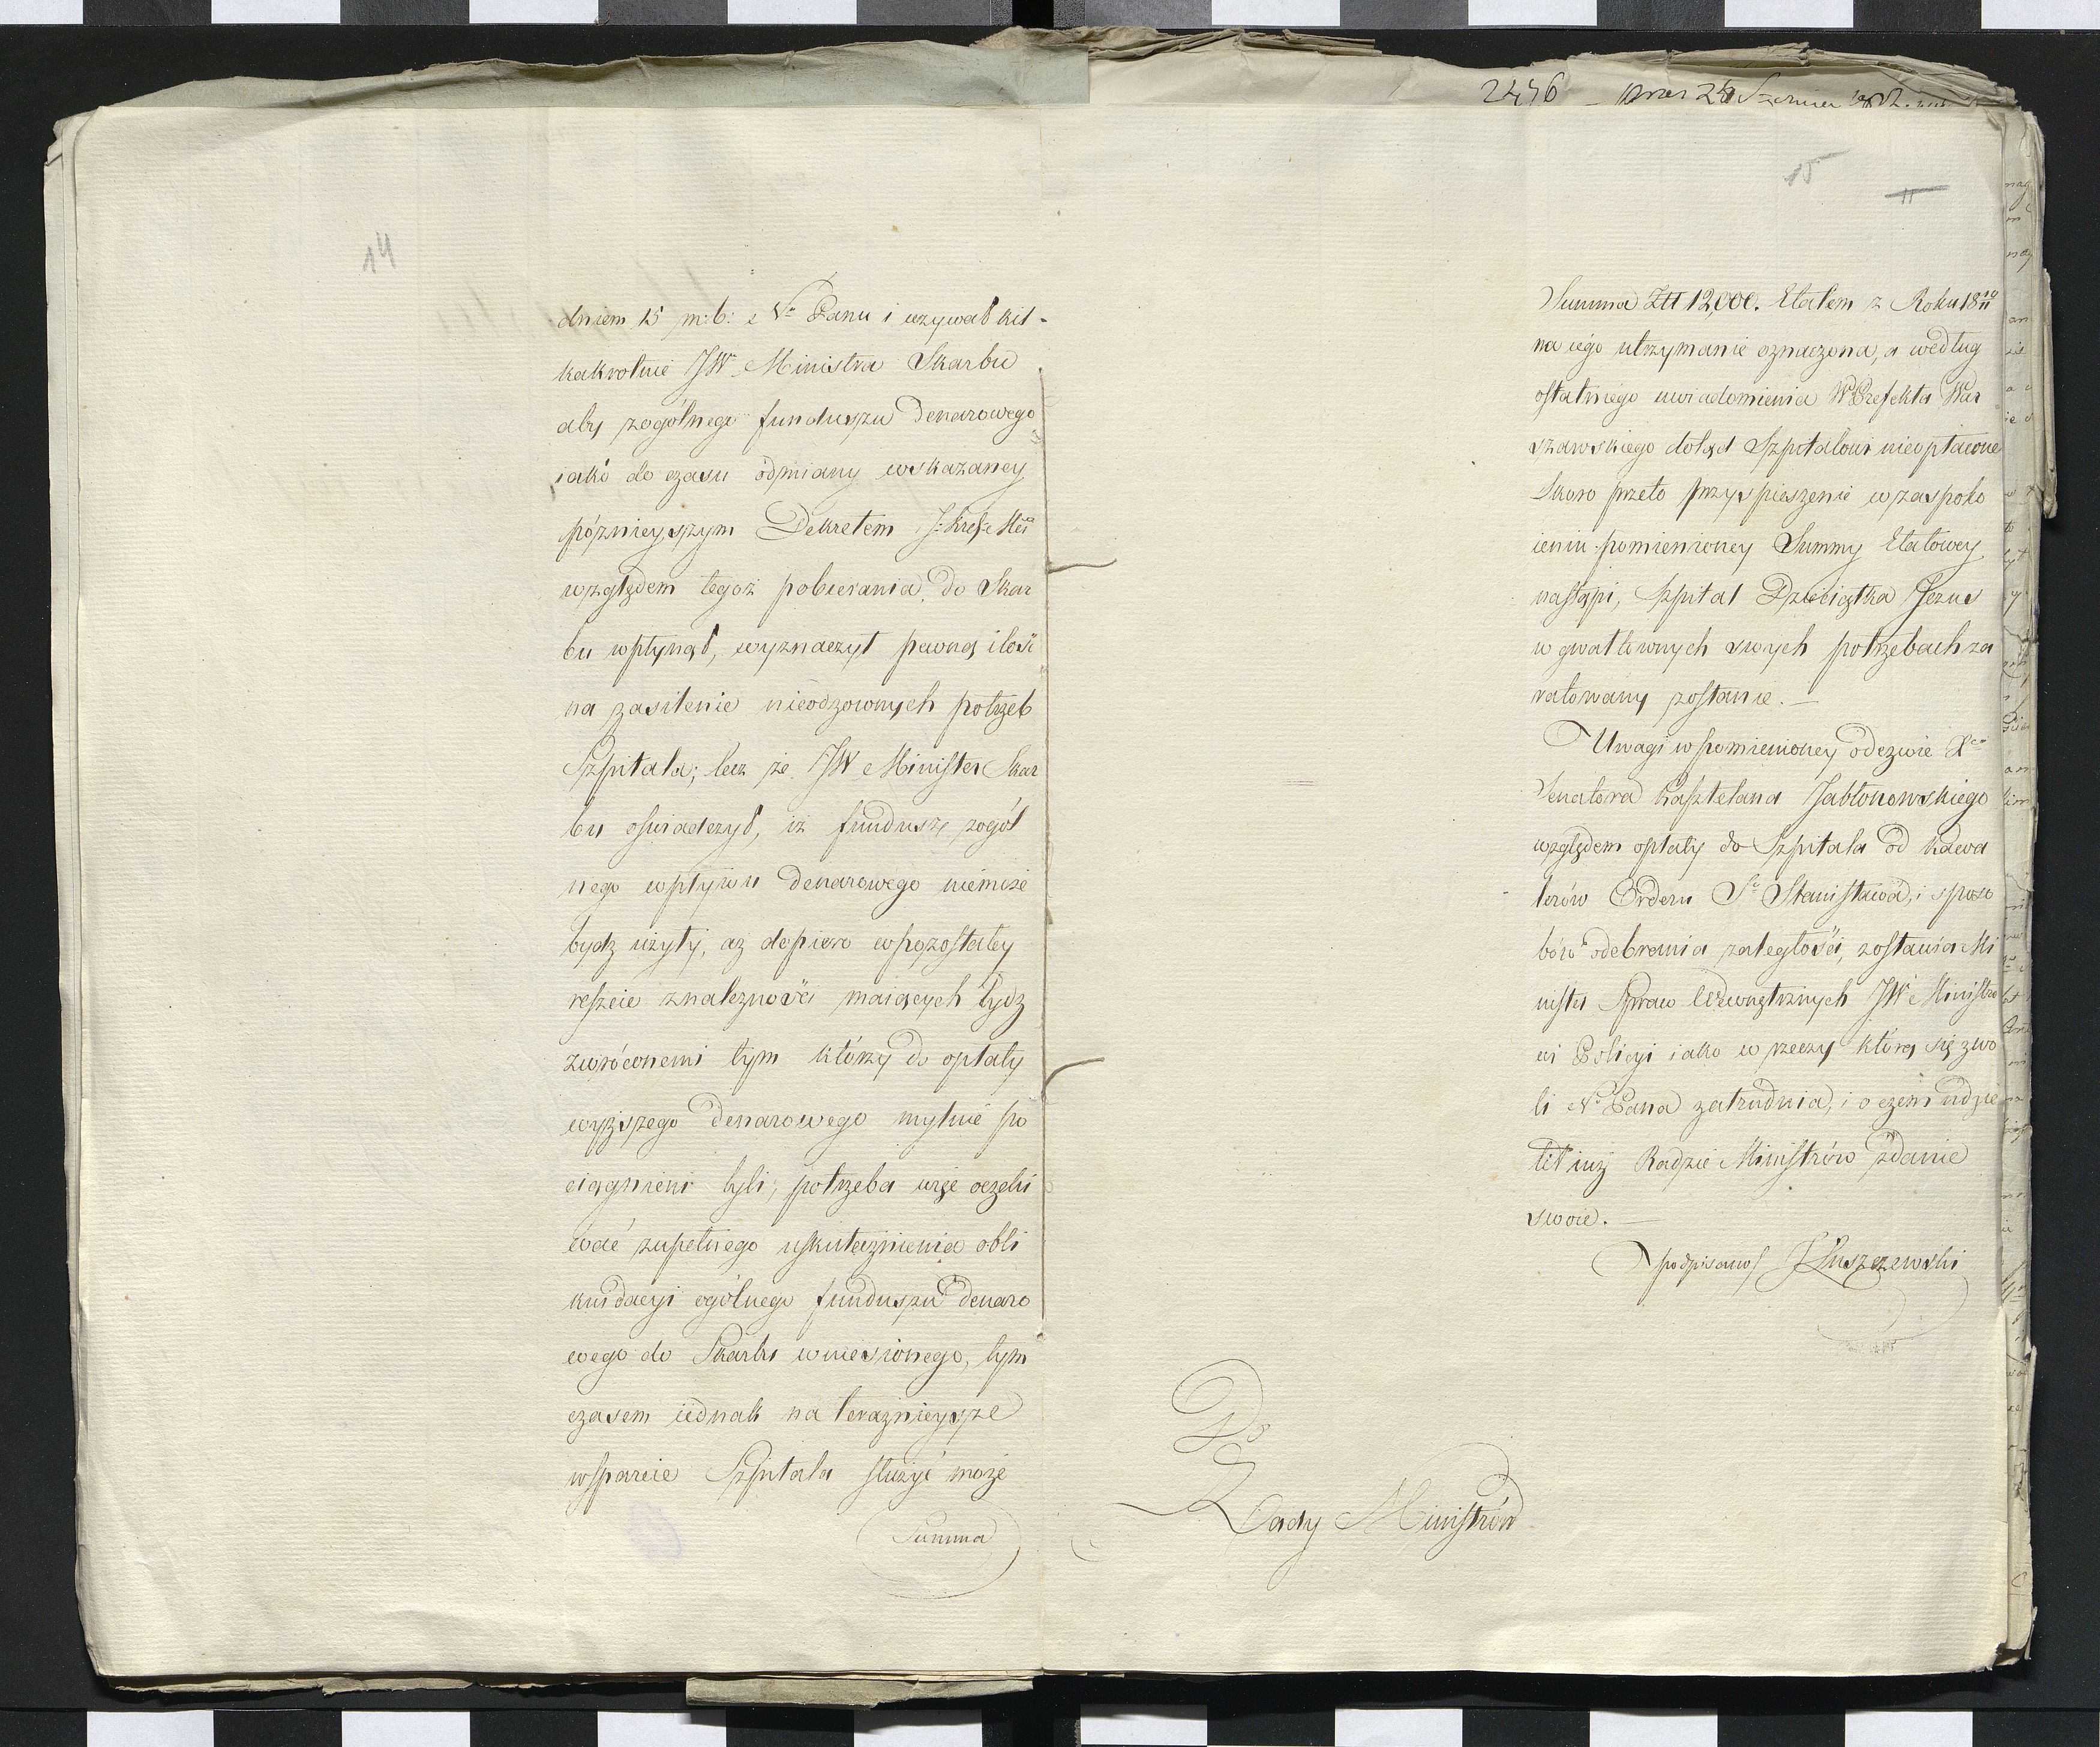 14
dniem 15 m: b: N° Panu i wzywał kil-
kakrotnie JW Ministra Skarbu
aby zogólnego funduszu Denarowego
iako do czasu odmiany wskazaney
póznieyszym Dekretem
względem tegoż pobierania, do Skar
bu wpłynął, wyznaczył pewną ilość
na zasilenie nieodzownych potrzeb
Szpitala; lecz że JW Minister Skar
bu oswiadczył, iż fundusz zogól
nego wpływu Denarowego niemoże
bydz użyty, aż dopiero wpozostałey
reszcie znaleznosci maiących bydz
zwróconemi tym którzy do opłaty
wyższego Denarowego mylnie po
ciągnieni byli; potrzeba więc oczeki
wać zupełnego uskutecznienia obli
kwidacyi ogólnego funduszu denaro
wego do Skarbu wniesionego, tym
czasem iednak na teraznieysze
wsparcie Szpitala służyć może
Summa
2476
15
11
Summa Złł 12,000. Etatem z Roku 18 10/11
na iego utrzymanie oznaczona, a według
ostatniego uwiadomienia WPrefekta War
szawskiego dotąd Szpitalowi nieopłacone
Skoro przeto przyspieszenie w zaspoko
ieniu pomienioney Summy Etatowey
nastąpi, Szpital Dzieciątka Jezus
w gwałtownych swych potrzebach za
ratowany zostanie. —
Uwagi w pomienioney odezwie
Senatora Kasztelana Jabłonowskiego
względem opłaty do Szpitala od Kawa
lerów Orderu S° Stanisława, i sposo
bów odebrania zaległości, zostawia Mi
nistr Spraw Wewnętrznych JW Ministro
wi Policyi iako w rzeczy którą się z wo
li N° Pana zatrudnia, i o czem udzie
lił iuż Radzie Ministrów zdanie
swoie. —
podpisano/ JŁuszczewski
Do
Rady Ministrów